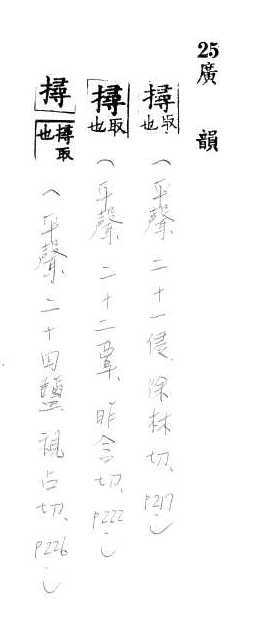 25 廣韻
撏 取也 （平聲 二十一侵、除林切、P217）
撏 取也 （平聲 二十二覃、昨含切、P222）
撏 撏取也 （平聲 二十四鹽 視占切、P226）